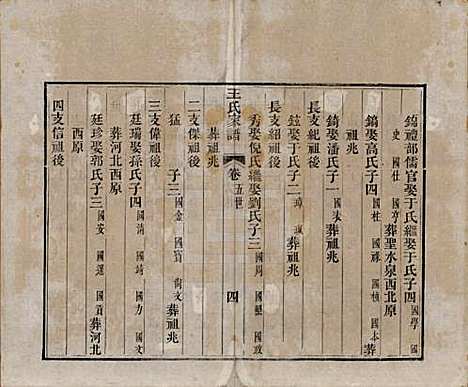 鐃禮部儒官娶于氏繼娶于氏子四 國學 國
史 國仕 國亨 葬聖水泉西北原
鎬娶高氏子四 國柱 國禄 國楨 國本 葬
祖兆
錡娶潘氏子一 葬祖兆
長支紀祖後
鉉娶于氏子二 葬祖兆
長支紹祖後
秀娶倪氏繼娶劉氏子三 國周 國璽 國政
葬祖兆
王氏家譜 卷五世 四
二支傑祖後
猛 子三 國金 國寶 尚文 葬祖兆
三支偉祖後
廷瑞娶孫氏子四 國清 國靖 國方 國文
葬河北西原
廷珍娶郭氏子三 國安 國運 國眘 葬河北
西原
四支信祖後